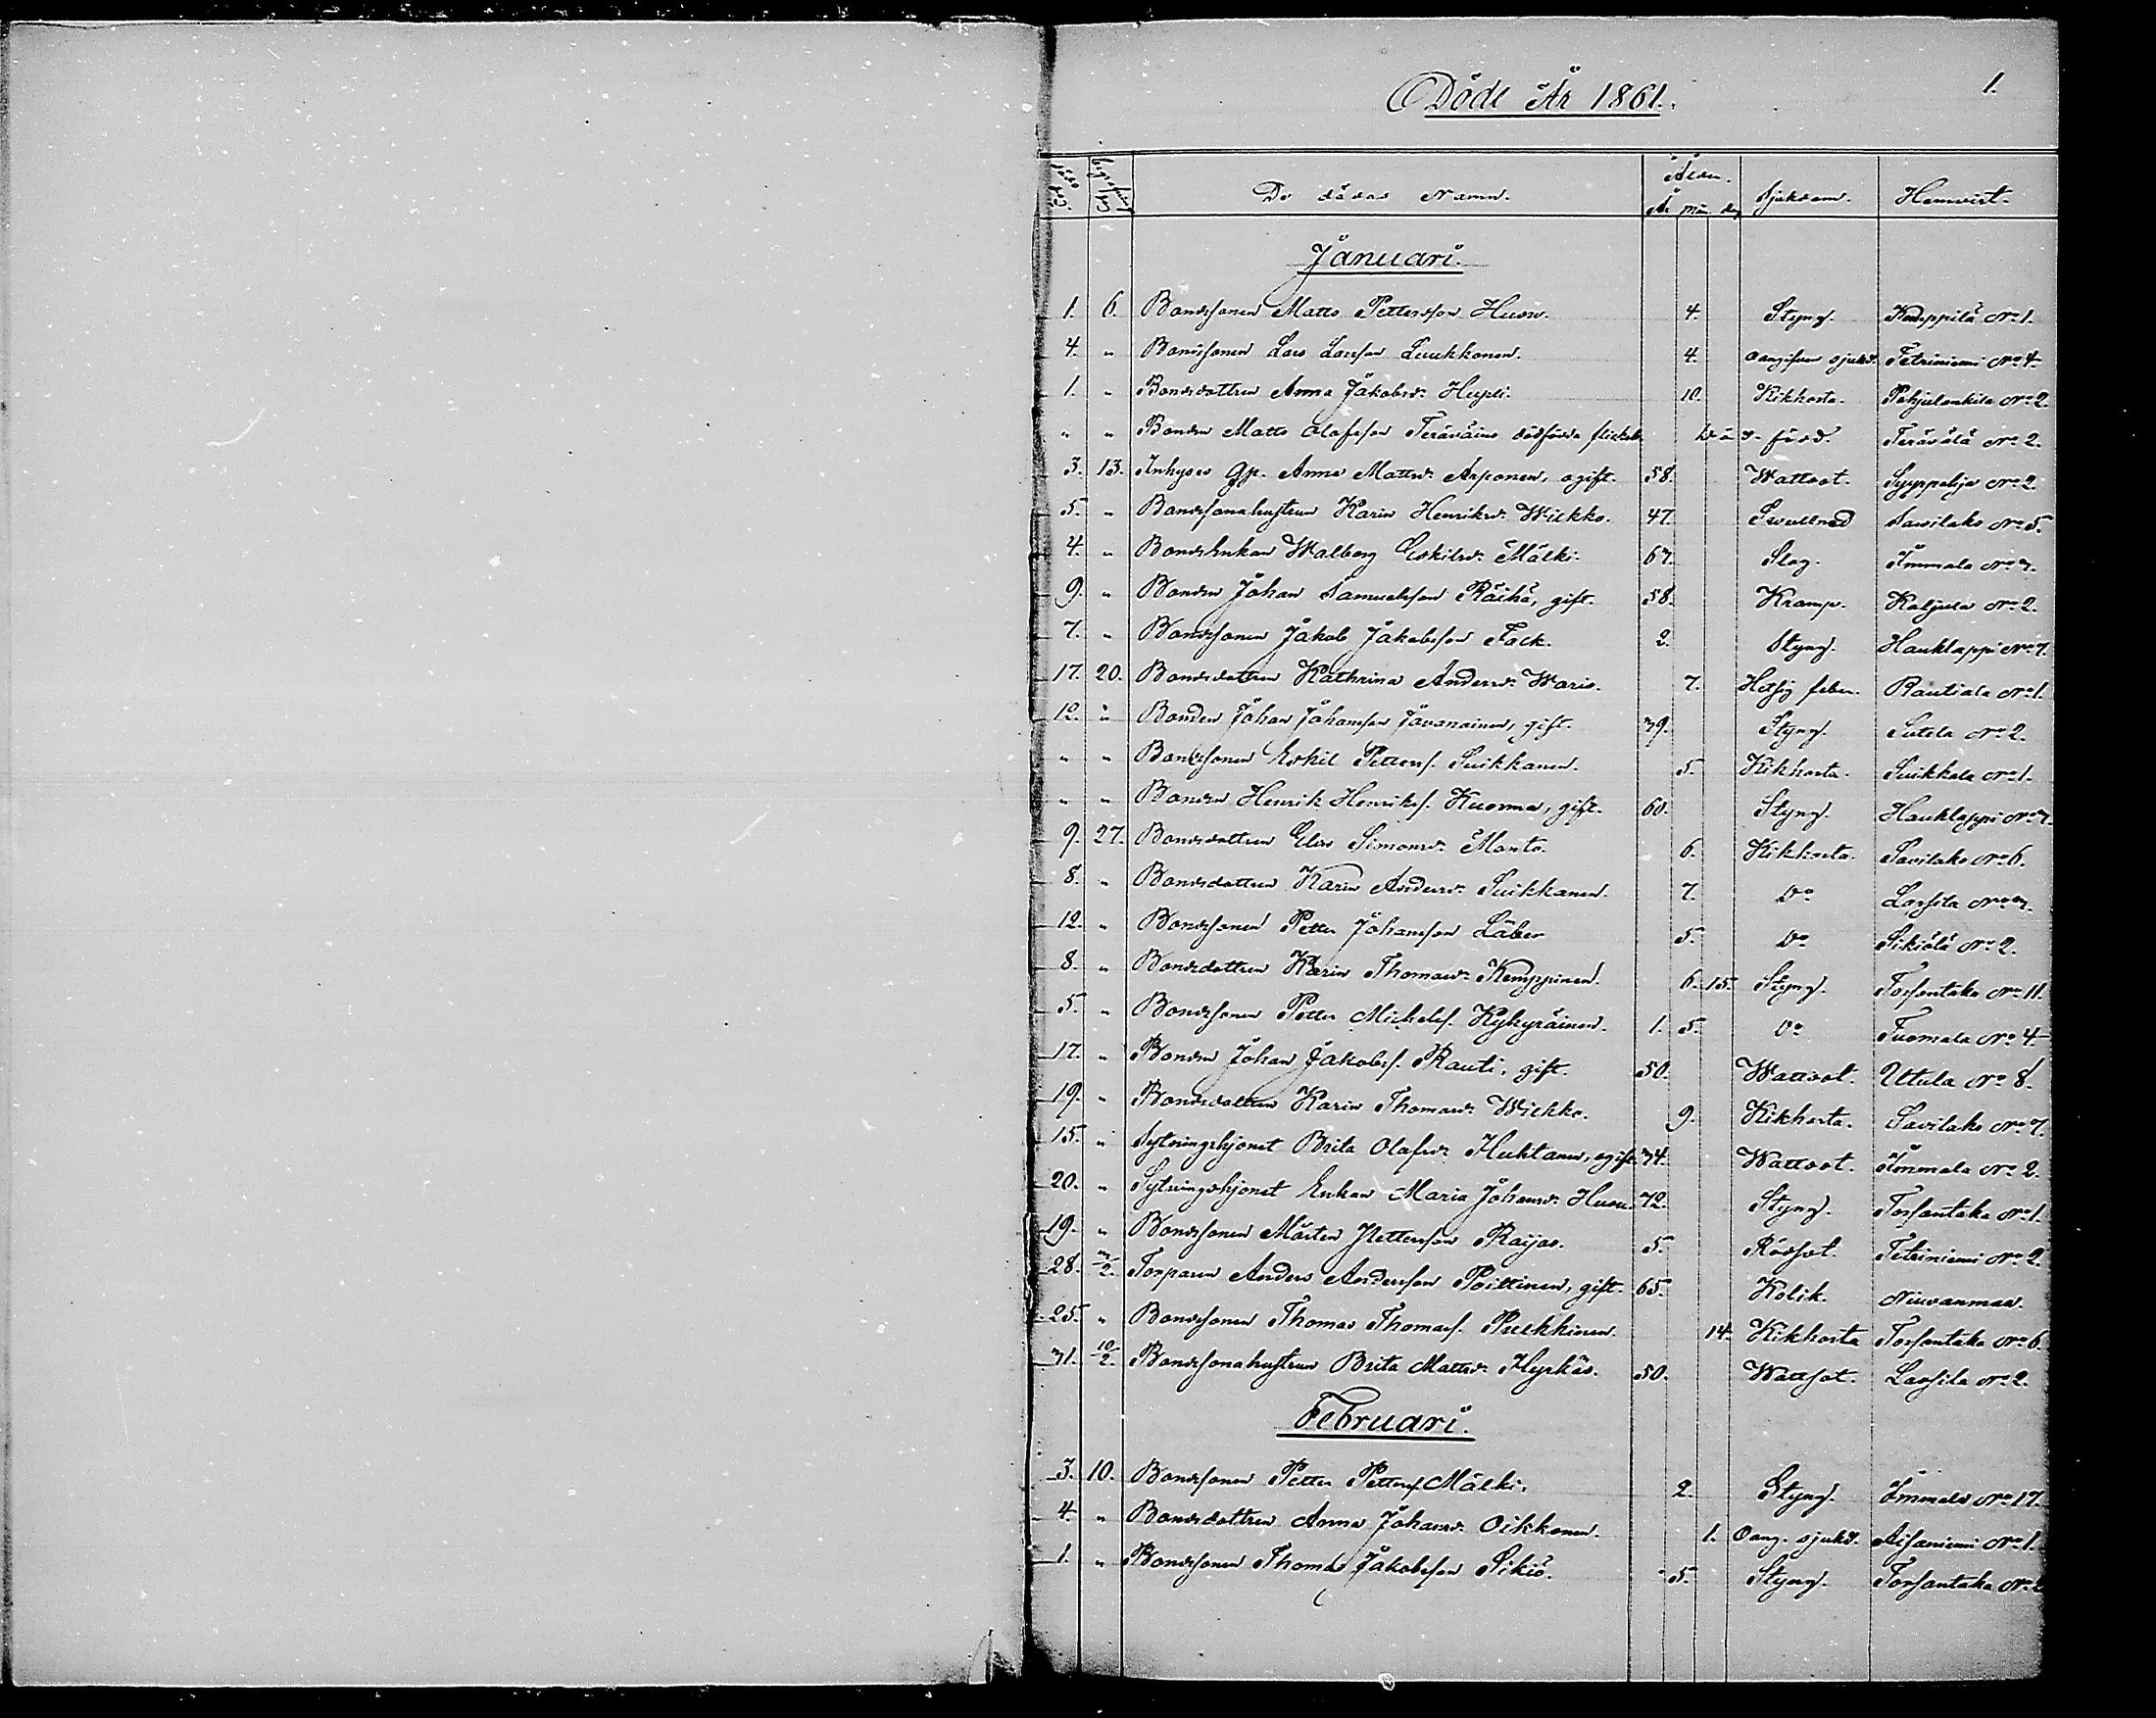 Döde År 1861.
1.
De dödas Namn. Ålder. Sjukdom. Hemvist.
År mån dag
Januari.
1. 6. Bondesonen Matts Pettersson Huow. 4. Styng. Kemppilä No 1.
4. " Bondesonen Lars Larsson Luukkonen. 4. oangifven sjukd. Tetriniemi No 4.
1. " Bondedottren Anna Jakobsd:r Hupli. 10. Kikhosta. Pohjelankila No 2.
" " Bonden Matts Olofsson Teräväins dödfödda flickeb. Död-född. Terävälä No 2.
3. 13. Inhyses Qp. Anna Mattsd:r Arponen, ogift. 58. Wattsot. Syyppohja No 2.
5. " Bondesonahustrun Karin Henriksd:r Wilkko. 47. Svullnad Savilaks No 5.
4. " Bondeenkan Walborg Eskilsd:r Mälki. 67. Slag. Immola No 3.
9. " Bonden Johan Samuelsson Räihä, gift. 58. Kramp. Kaljula No 2.
7. " Bondesonen Jakob Jakobsson Fack. 2. Styng. Hauklappi No 7.
17. 20. Bondedottren Kathrina Andersd:r Waris. 7. Hetsig feber. Rautiala No 1.
12. " Bonden Johan Johansson Javanainen, gift. 39. Styng. Sutela No 2.
" " Bondesonen Eskil Petters. Suikkanen. 5. Kikhosta. Suikkala No 1.
" " Bonden Henrik Henriks. Kuorma, gift. 60. Styng. Hauklappi No 7.
9. 27. Bondedottren Elin Simonsd:r Monto. 6. Kikhosta. Savilaks No 6.
8. " Bondedottren Karin Andersd:r Suikkanen. 7. Do Lassila No 3.
12. " Bondesonen Petter Johansson Läber 5. Do Sikiölä No 2.
8. " Bondedottren Karin Thomasd:r Kemppinen. 6. 15. Styng. Torsantaka No 11.
5. " Bondesonen Petter Michels. Kykyräinen. 1. 5. Do Tuomala No 4.
17. " Bonden Johan Jakobs. Rauti, gift. 50. Wattsot. Utula No 8.
19. " Bondedottren Karin Thomasd:r Wilkko. 9. Kikhosta. Savilaks No 7.
15. " Sytningshjonet Brita Olofsd:r Huhtanen, ogift. 74. Wattsot. Immola No 2.
20. " Sytningshjonet Enkan Maria Johansd:r Husu. 72. Styng. Torsantaka No 1.
19. " Bondesonen Mårten Pettersson Raijas. 5. Rödsot. Tetriniemi No 2.
28. 3/2. Torparen Anders Andersson Poittinen, gift. 65. Kolik. Niuvanmaa.
25. " Bondesonen Thomas Thomas. Pulkkinen. 14. Kikhosta Torsantaka No 6.
31. 10/2. Bondesonahustrun Brita Mattsd:r Hyrkäs. 50. Wattsot. Lassila No 2.
Februari.
3. 10. Bondesonen Petter Petters. Mälki. 2. Styng. Immola No 17.
4. " Bondedottren Anna Johansd:r Oikkonen. 1. Oang. sjukd. Aisaniemi No 1.
1. " Bondesonen Thomas Jakobsson Sikiö. 5. Styng. Torsantaka No 2